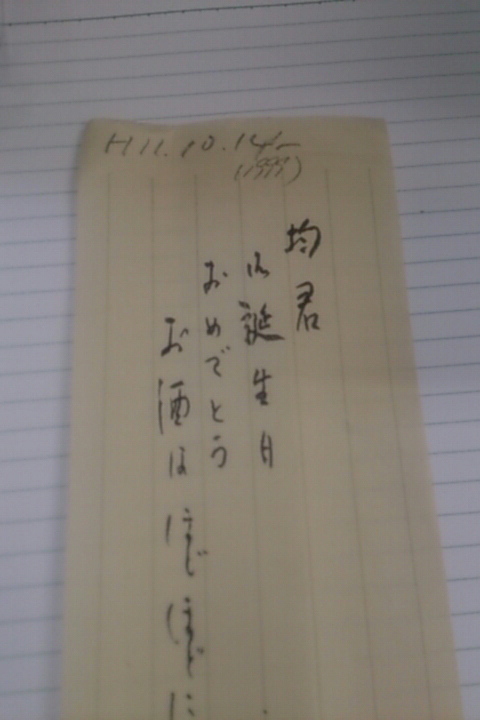 H11.10.14
(1999)
均君
御誕生日
おめでとう
お酒は ほどほどに